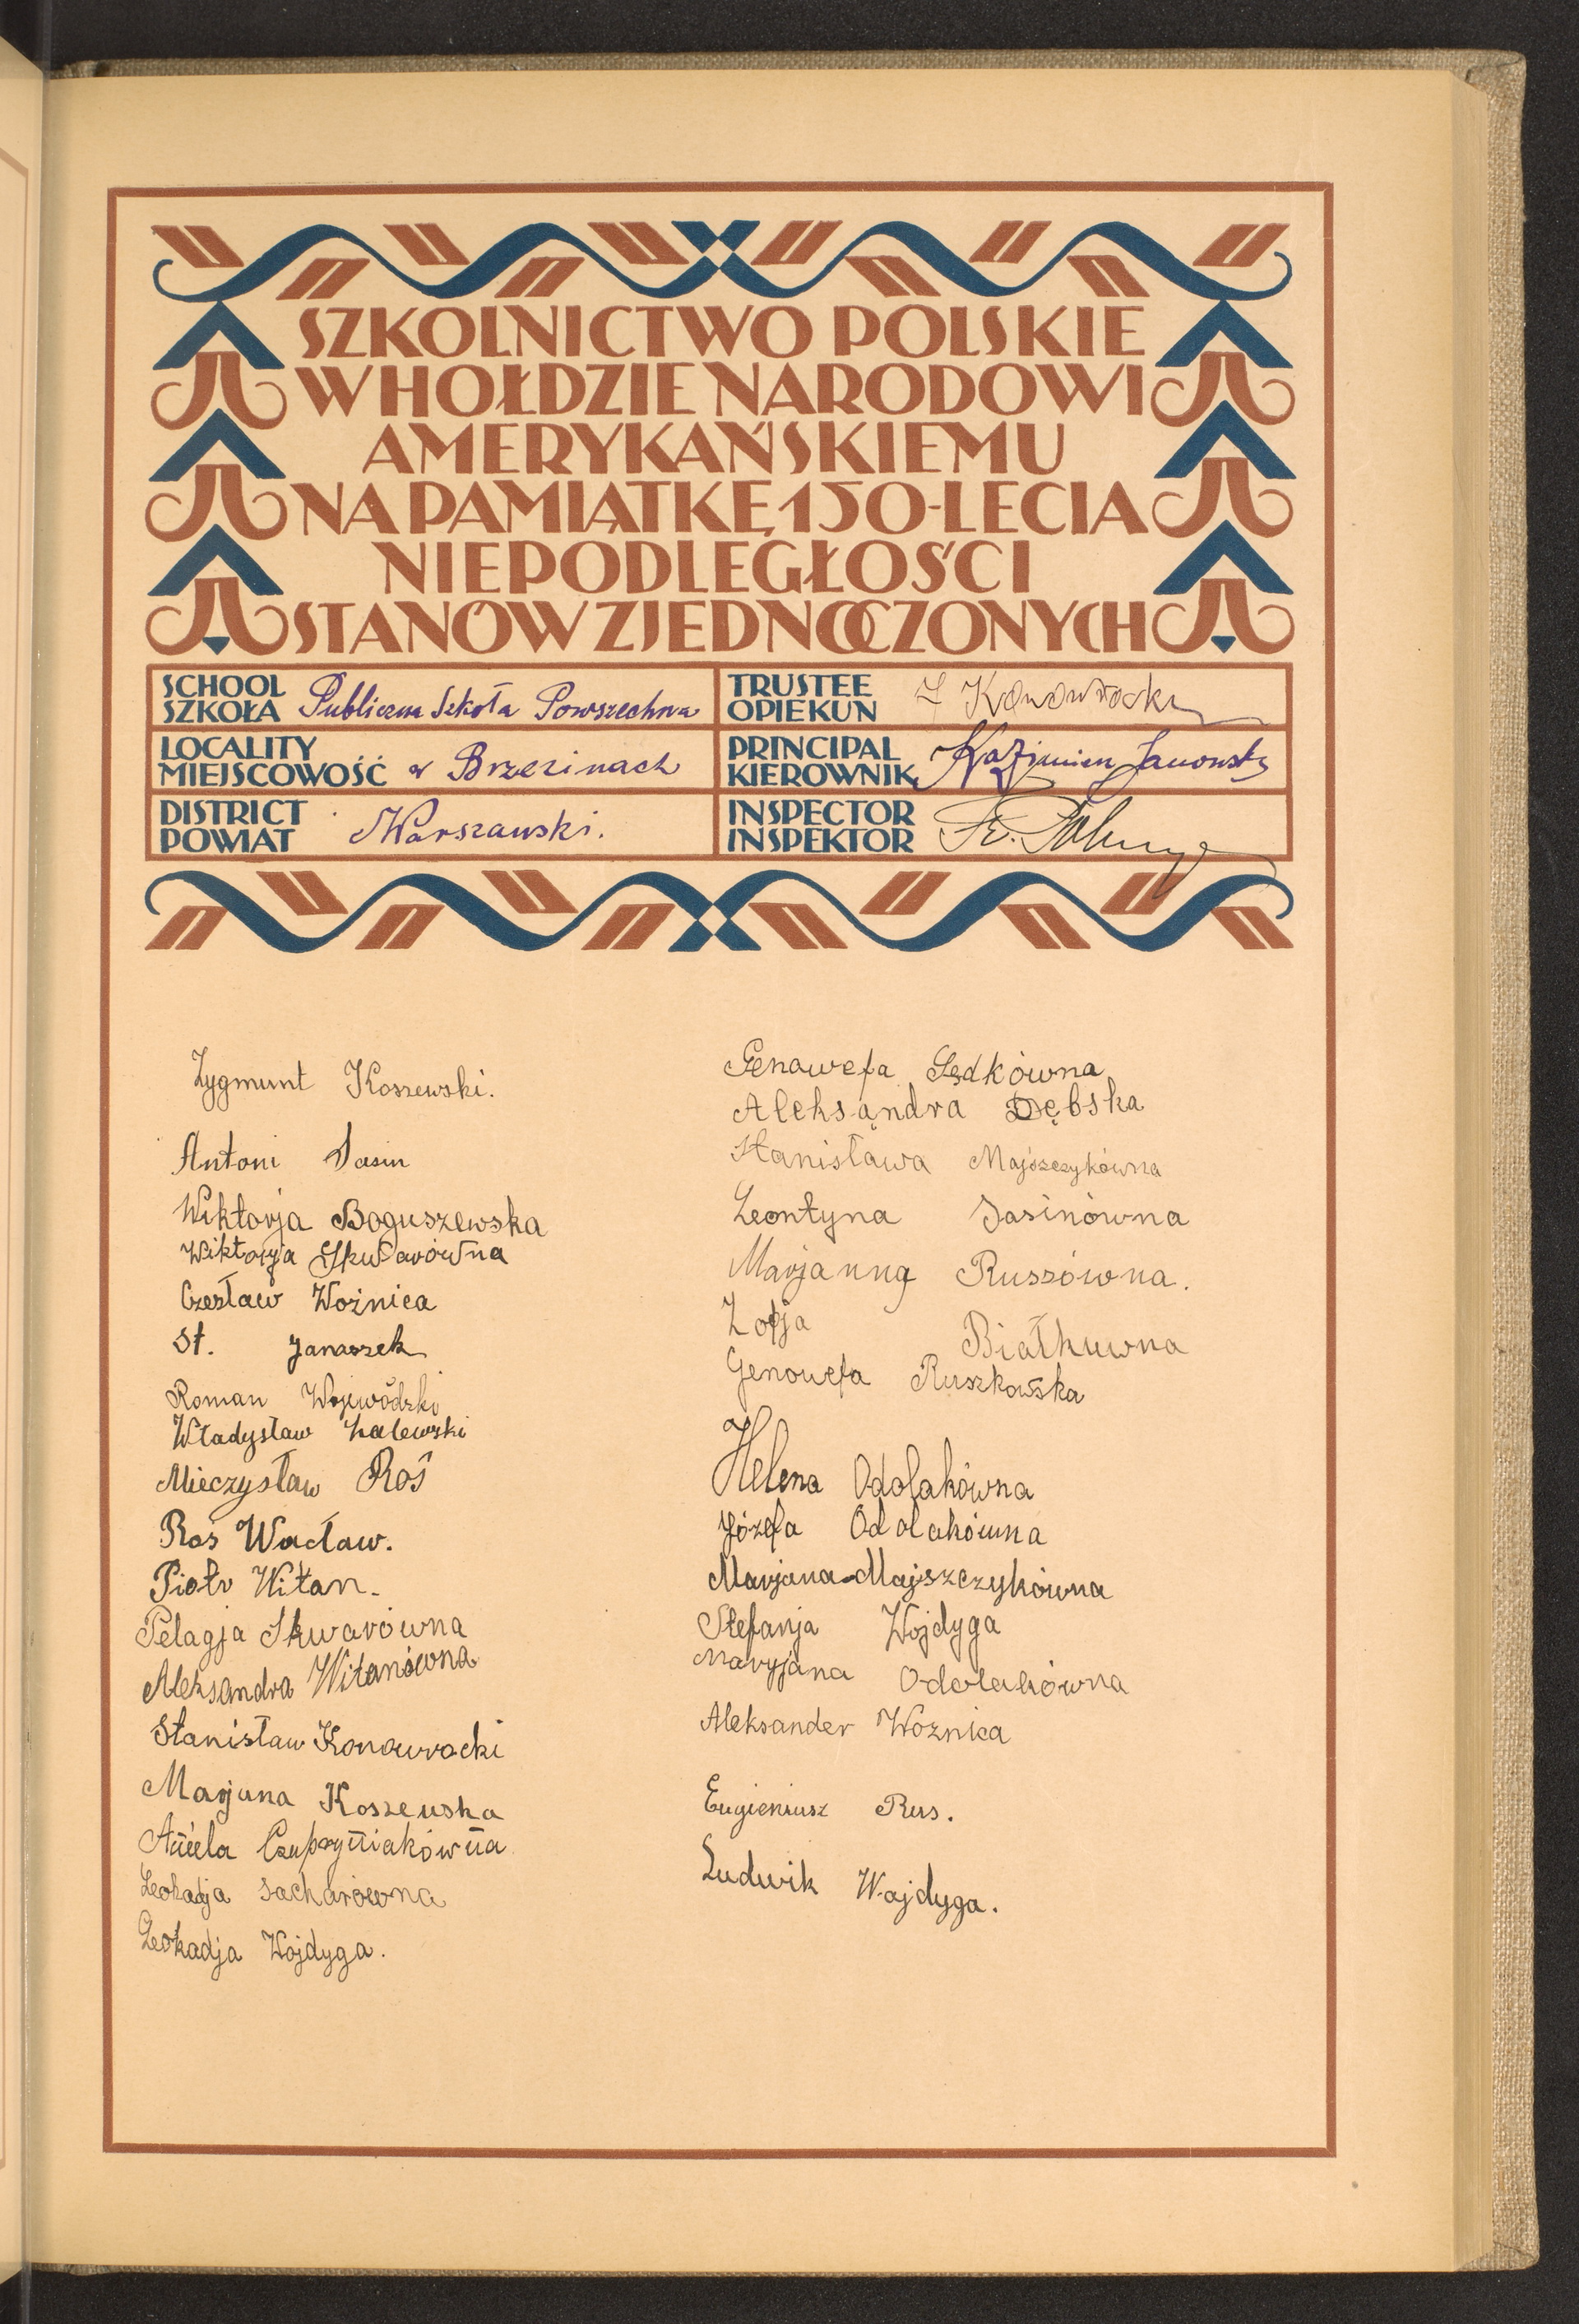 SZKOLNICTWO POLSKIE
W HOŁDZIE NARODOWI
AMERYKAŃSKIEMU
NA PAMIĄTKĘ 150-LECIA
NIEPODLEGŁOŚCI
STANÓW ZJEDNOCZONYCH
SCHOOL
SZKOŁA Publiczna Szkoła Powszechna
TRUSTEE
OPIEKUN Konowrocki
LOCALITY
MIEJSCOWOŚĆ w Brzezinach
PRINCIPAL
KIEROWNIK Kazimierz Janowski
DISTRICT
POWIAT Warszawski.
INSPECTOR
INSPEKTOR Fr.
Zygmunt Koszewski.
Antoni Sasin
Wiktorja Boguszewska
Wiktorja Skwarówna
Czesław Woźnica
St. Janaszek
Roman Wojewódzki
Władysław Zalewski
Mieczysław Roś
Roś Wacław.
Piotr Witan.
Pelagja Skwarówna
Aleksandra Witanówna
Stanisław Konowrocki
Marjana Koszewska
Aniela Czupryniakówna
Leokadja Sacharówna
Leokadja Wojdyga.
Genowefa Sędkówna
Aleksandra Dębska
Stanisława Majszczykówna
Leontyna Sasinówna
Marjanna Ruszówna.
Zofja Białkuwna
Genowefa Ruszkowska
Helena Odolakówna
Józefa Odolakówna
Marjana Majszczykówna
Stefanja Wojdyga
Maryjana Odolakówna
Aleksander Woźnica
Eugieniusz Rus.
Ludwik Wojdyga.